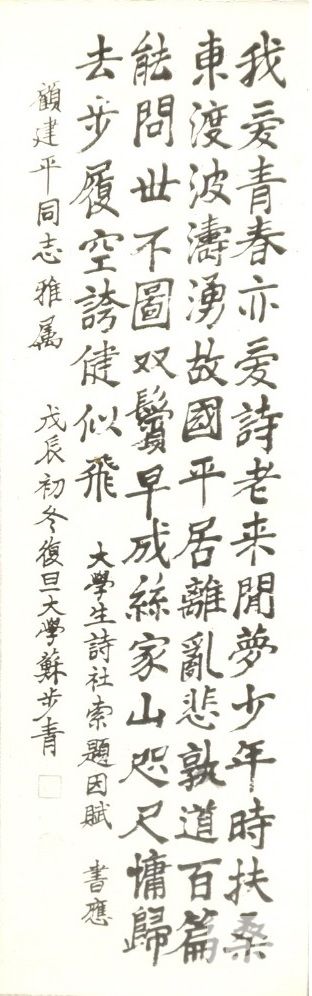 我爱青春亦爱詩老来閒夢少年時扶桑
東渡波濤湧故國平居離亂悲孰道百篇
能問世不圖双鬢早成絲家山咫尺慵歸
去步履空誇健似飛
大學生詩社索題因賦 書應
顧建平同志雅属 戊辰初冬復旦大學蘇步青